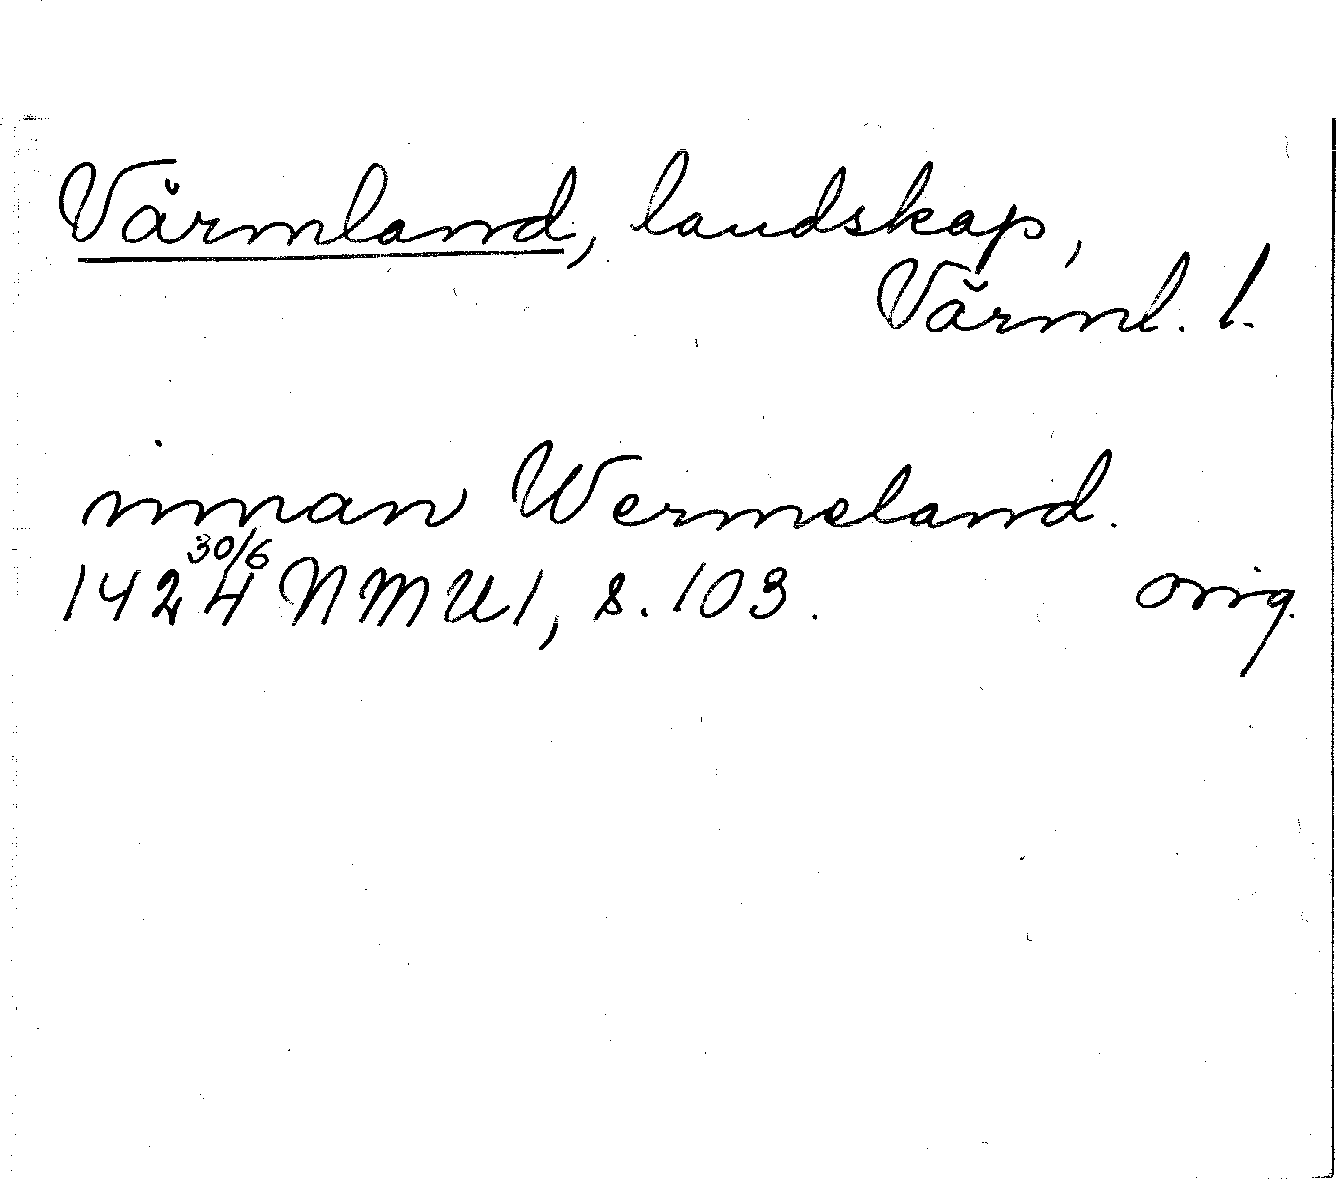 Värmland, landskap,
Värml. l.
innan Wermeland.
1424 30/6 NMU1, s. 103. orig.